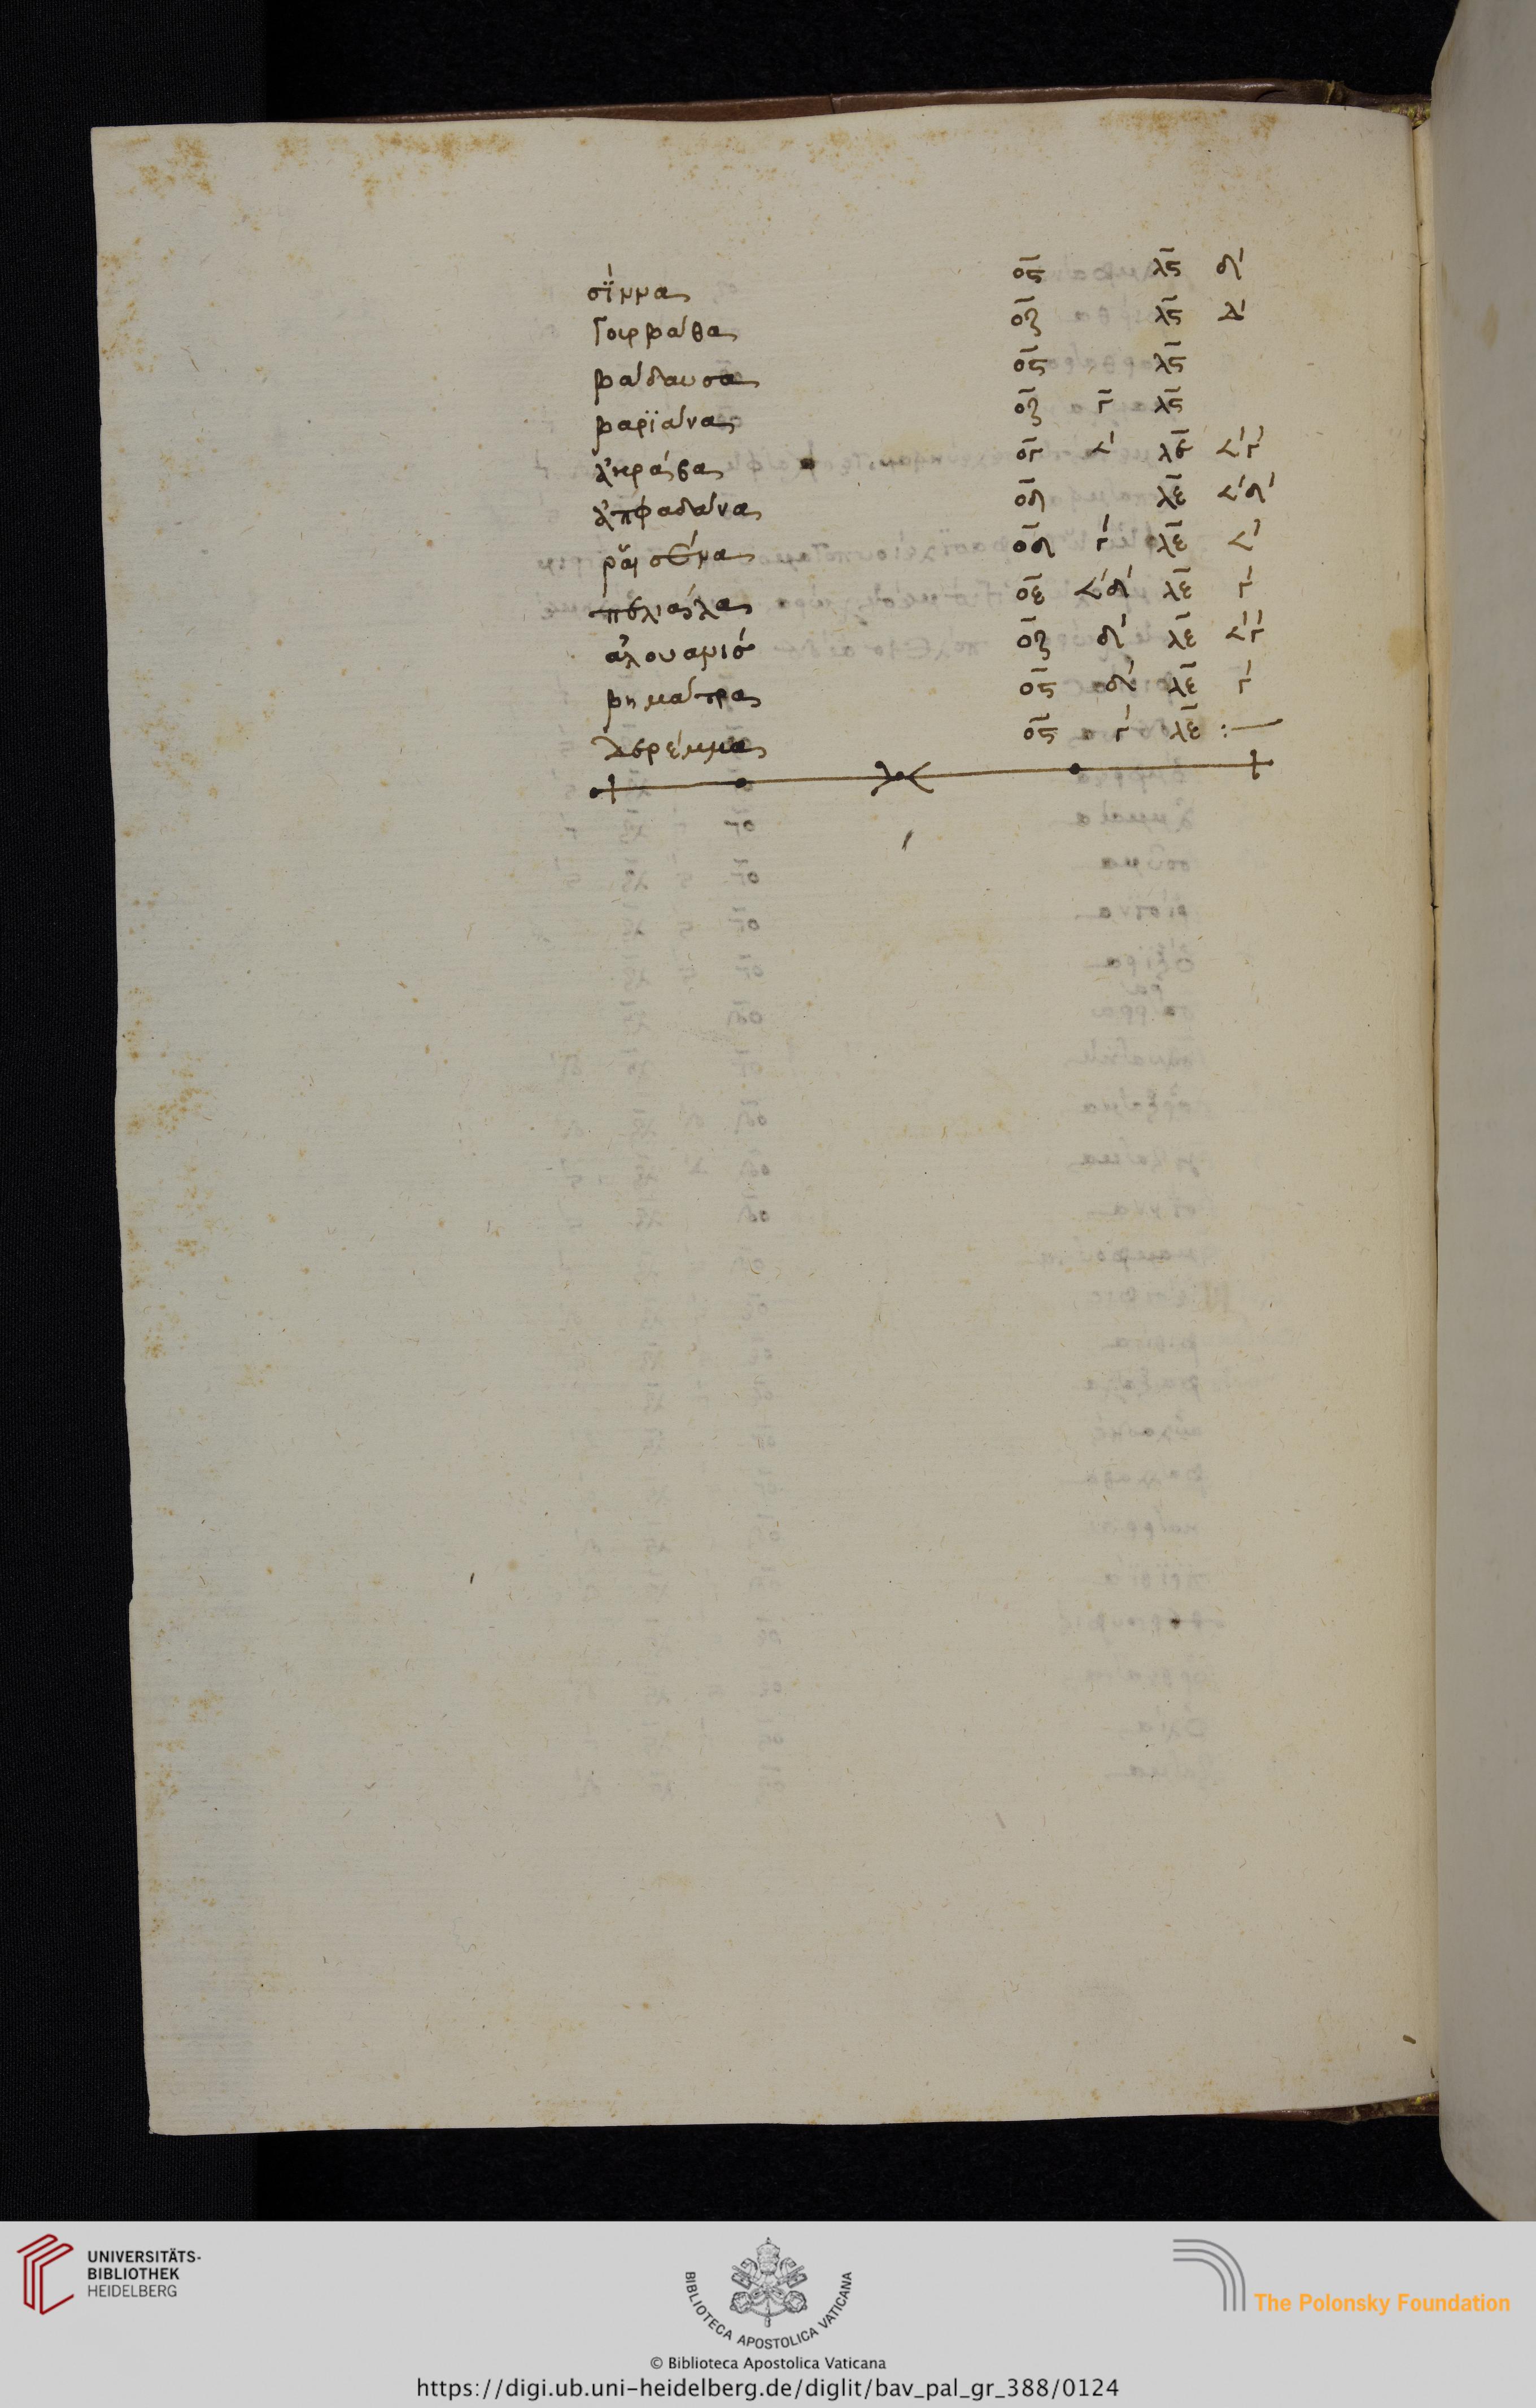 σΐμμα οϛ λϛ δ'
Γορβάθα οζ λϛ δ'
βάδαυσα οϛ λϛ
βαρϊάνα οζ γ λϛ
ἀκράβα ογ 𐅵' λε 𐅵'γ'
ἀπφαδάνα οδ λε 𐅵'δ'
ῥαισένα οδ γ' λε 𐅵'
πελιάλα οε 𐅵'δ' λε γ'
ἀλουανίσ οζ δ' λε 𐅵'γ'
βημάτρα οϛ δ' λε γ'
δερέμμα οϛ γ' λε :—
UNIVERSITÄTS-
BIBLIOTHEK
HEIDELBERG
BIBLIOTECA APOSTOLICA VATICANA
The Polonsky Foundation
© Biblioteca Apostolica Vaticana
https://digi.ub.uni-heidelberg.de/diglit/bav_pal_gr_388/0124